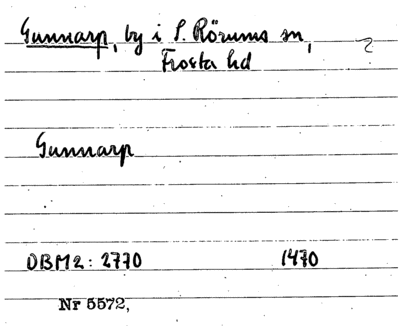 Gunnarp, by i S. Rörums sn,
Frosta hd
Gunnarp
DBM2: 2770 1470
Nr 5572,